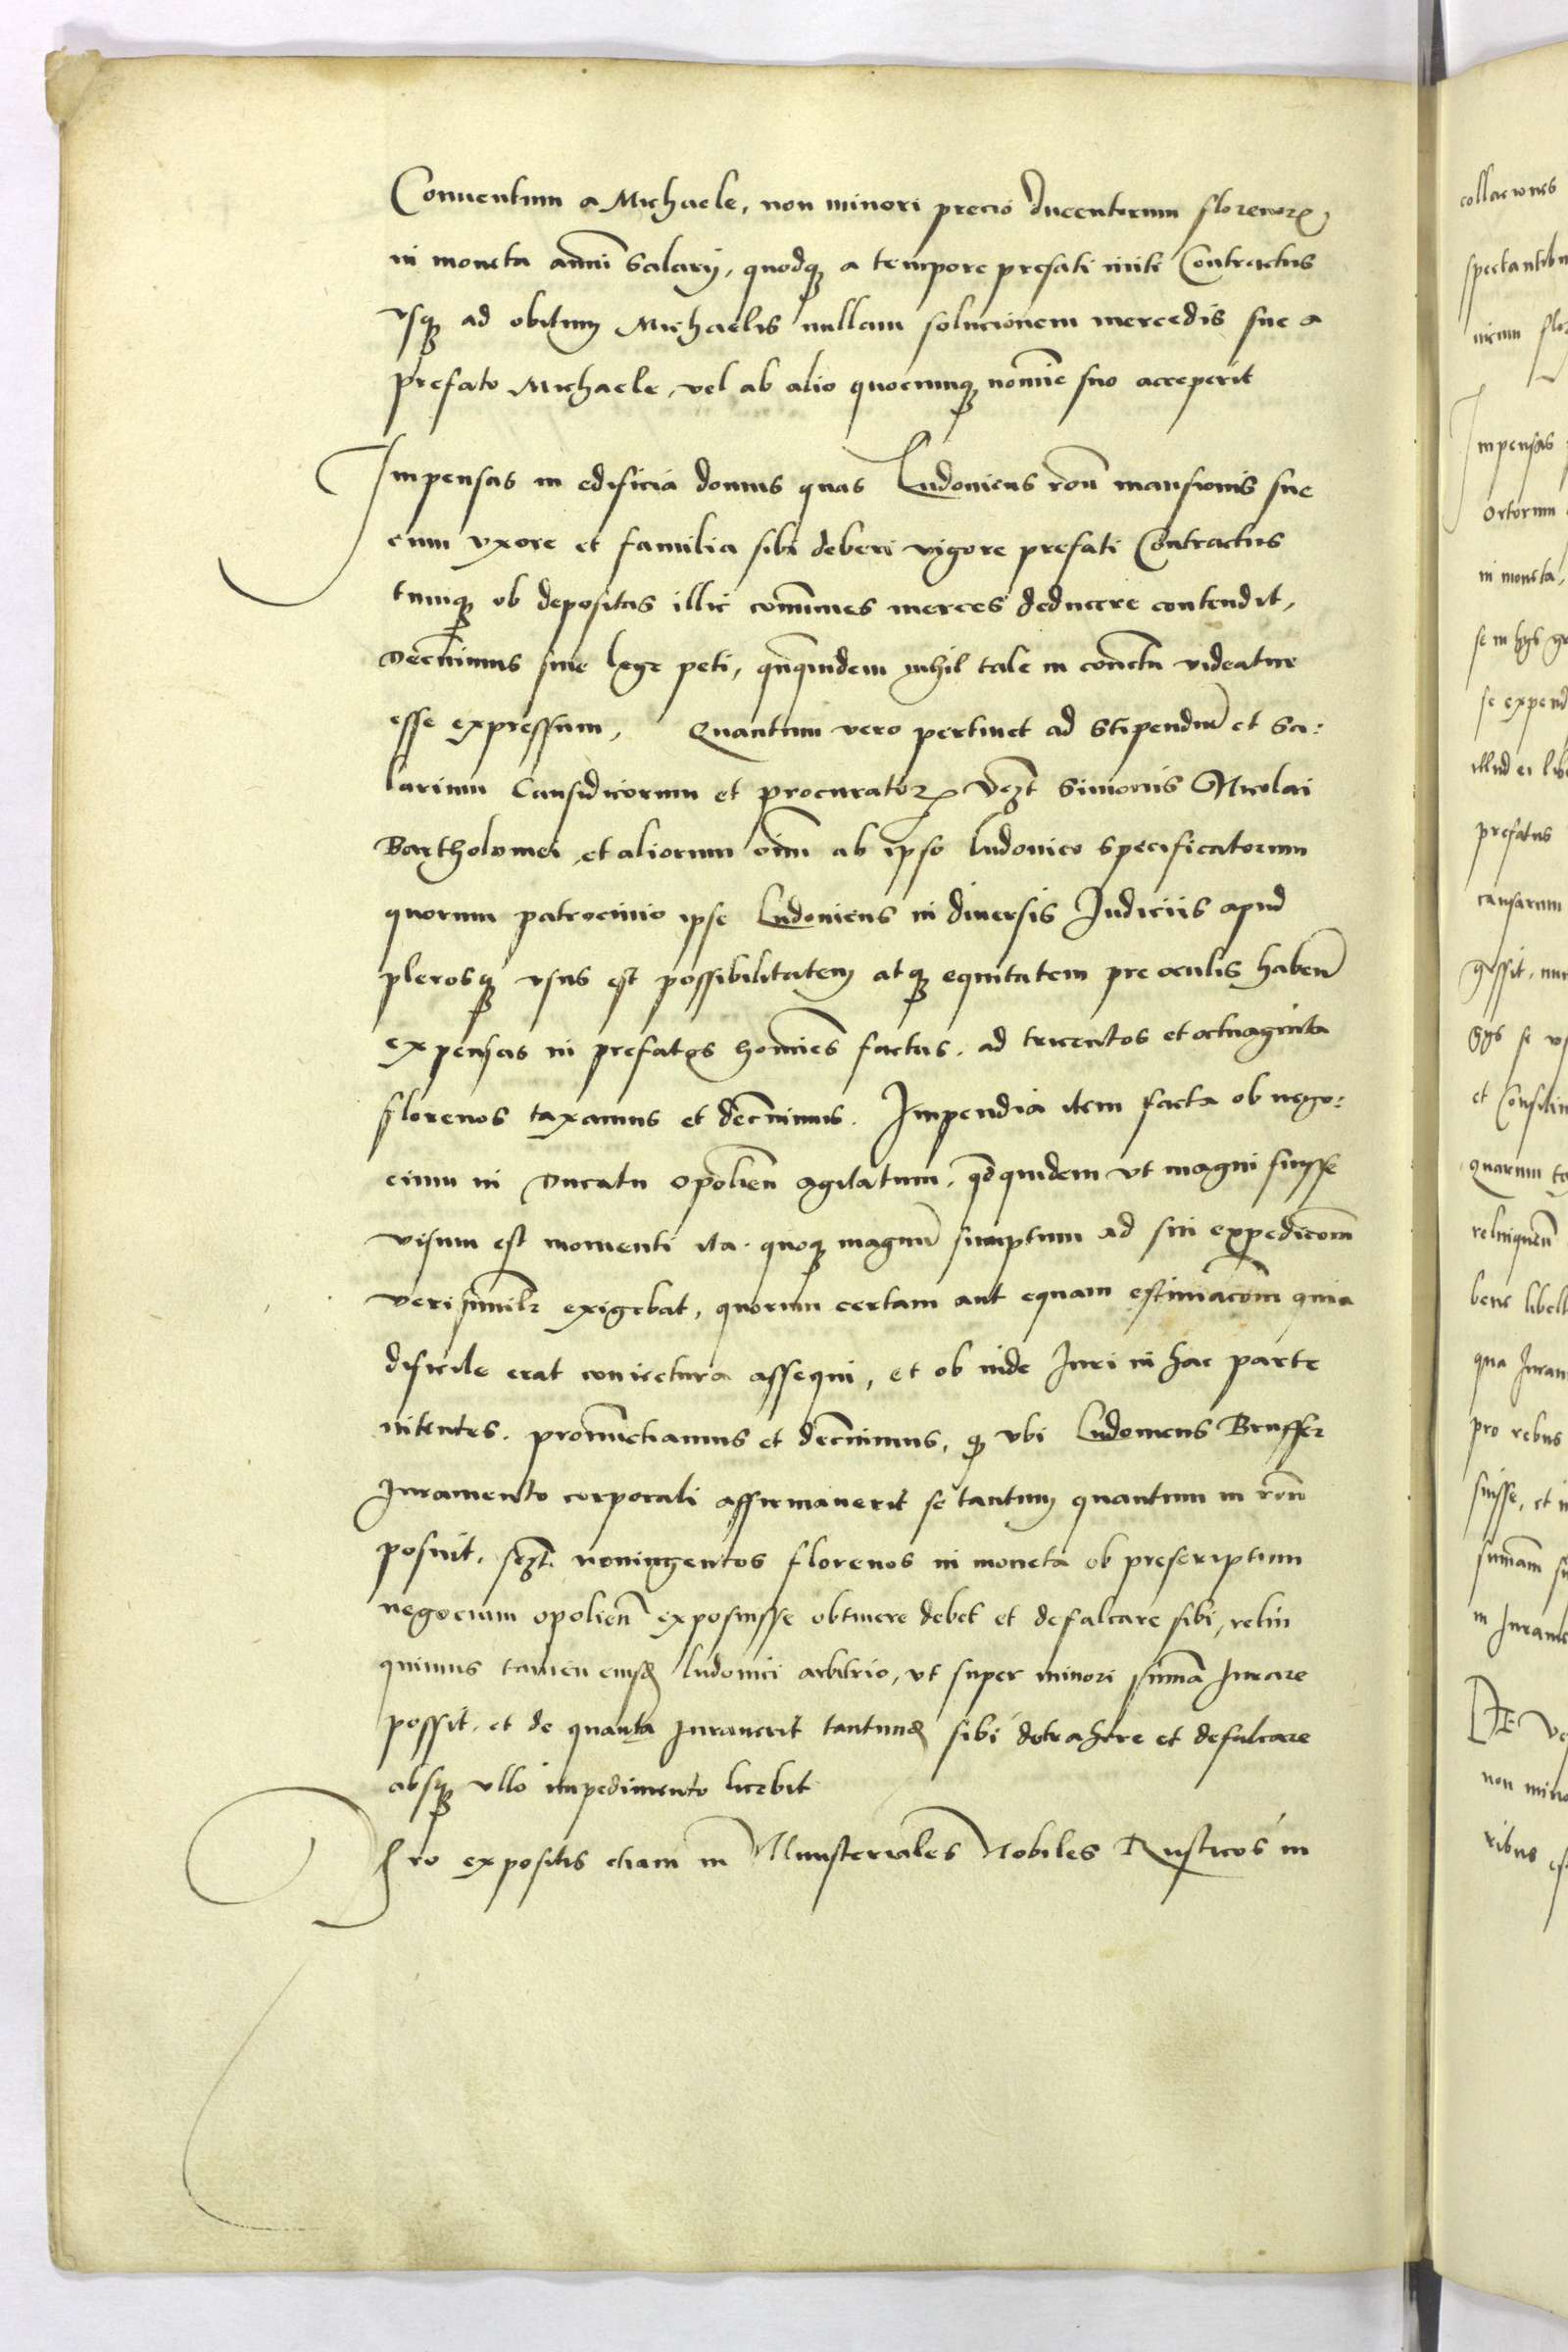 Conuentum a Michaele, non minori precio ducentorum florenorꝝ
in moneta anni Salarij, quodqꝫ a tempore prefati initi Contractus
vsqꝫ ad obitum Michaelis nullam solucionem mercedis sue a
prefato Michaele, vel ab alio quocunqꝫ nomīe suo acceperit
Impensas in edificia domus quas Ludouicus roñ mansionis sue
cum vxore et familia sibi deberi vigore prefati Contractus
tumqꝫ ob depositas illic communes merces deducere contendit,
Decernimus sine lege peti, ququidem nihil tale in contctu videatur
esse expressum, Quantum vero pertinet ad Stipendiū et Sa:
larium Causidicorum et procuratorꝝ vcꝫt Simonis Nicolai
Bartholomei, et aliorum oīm ab ipso Ludouico specificatorum
quorum patrocinio ipse Ludouicus in diuersis Iudiciis apud
plerosqꝫ vsus est possibilitatem atqꝫ equitatem pre oculis habeñ
expensas in prefatos homīes factas. ad tricentos et octuaginta
florenos taxamus et decernimus. Impendia item facta ob nego:
cium in Ducatu Opolieñ agitatum, qđquidem vt magni fuisse
visum est momenti ita quoqꝫ magnū sumptum ad sui expedicōm
verisimilr exigebat, quorum certam aut equam estimacōm quia
dificile erat coniectura assequi, et ob inde Iuri in hac parte
nitentes. pronunctiamus et decernimus, qꝫ vbi Ludouicus Bruffer
Iuramento corporali affirmauerit se tantum quantum in roñ
posuit, scꝫt. noningentos florenos in moneta ob prescriptum
negocium opolieñ exposuisse obtinere debet et defalcare sibi, relin
quimus tamen eiusd Ludouici arbitrio, vt super minori summa Iurare
possit, et de quanta Iurauerit tantund sibi detrahere et defalcare
absqꝫ vllo impedimento licebit
Pro expositis etiam in Ministeriales Nobiles Rusticos in
collaciones
spectantibu
nicum flo
Impensas
Ortorum
in moneta,
se in hijs
se expend
illud ei
prefatus
causarum
gessit,
et Consiliu
quarum
relinqueñ
bene libell
qua Iuram
pro rebus
fuisse, et
summam
in Iuram
DE
non mino
ribus